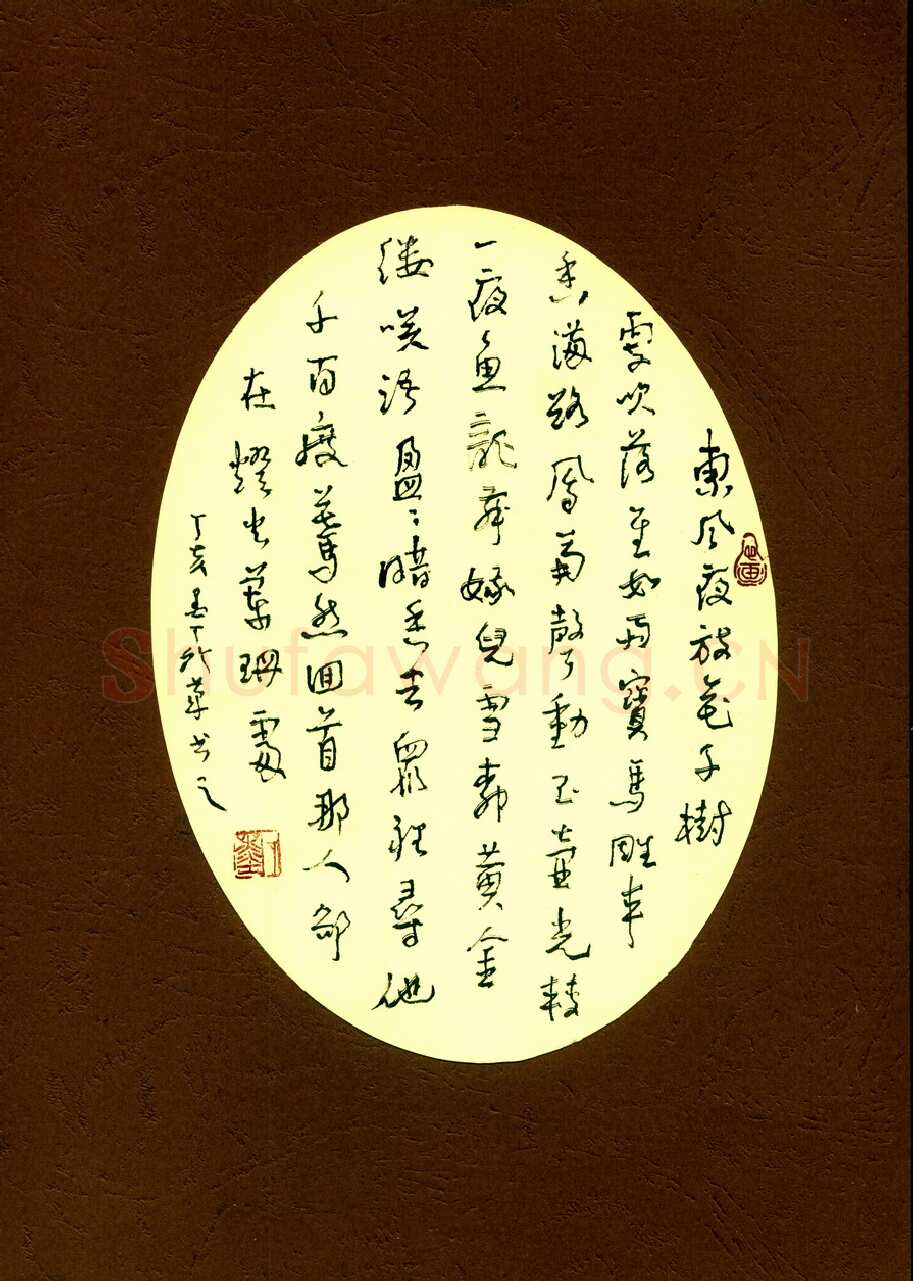 東風夜放花千樹
吹落星如雨寶馬雕車
香滿路鳳簫聲動玉壺光轉
一夜魚龍舞娥兒雪柳黃金
縷笑語盈〻暗香去眾裡尋他
千百度驀然回首那人卻
在燈火闌珊處
丁亥丁行草书之
Shufawang.CN